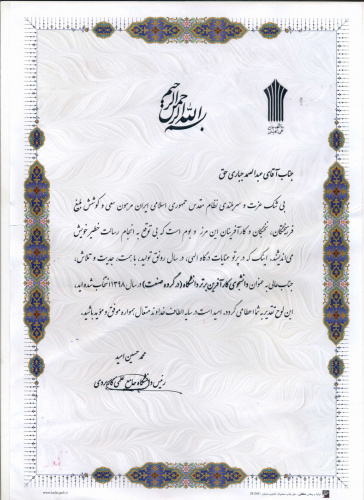 بسم الله الرحمن الرحیم
جناب آقای عبدالصمد جباری حق
بی شک عزت و سربلندی نظام مقدس جمهوری اسلامی ایران مرهون سعی و کوشش بلیغ
فرهیختگان، نخبگان و کارآفرینان این مرز و بوم است که بی توقع به انجام رسالت خطیر خویش
می اندیشند. اینک که در پرتو عنایات درگاه الهی، در سال رونق تولید، با همت، جدیت و تلاش،
جنابعالی به عنوان دانشجوی کارآفرین برتر دانشگاه (در گروه صنعت) در سال ۱۳۹۸ انتخاب شده اید،
این لوح تقدیر به شما اعطا می گردد. امید است در سایه الطاف خداوند متعال همواره موفق و مؤید باشید.
محمد حسین امید
رئیس دانشگاه جامع علمی کاربردی